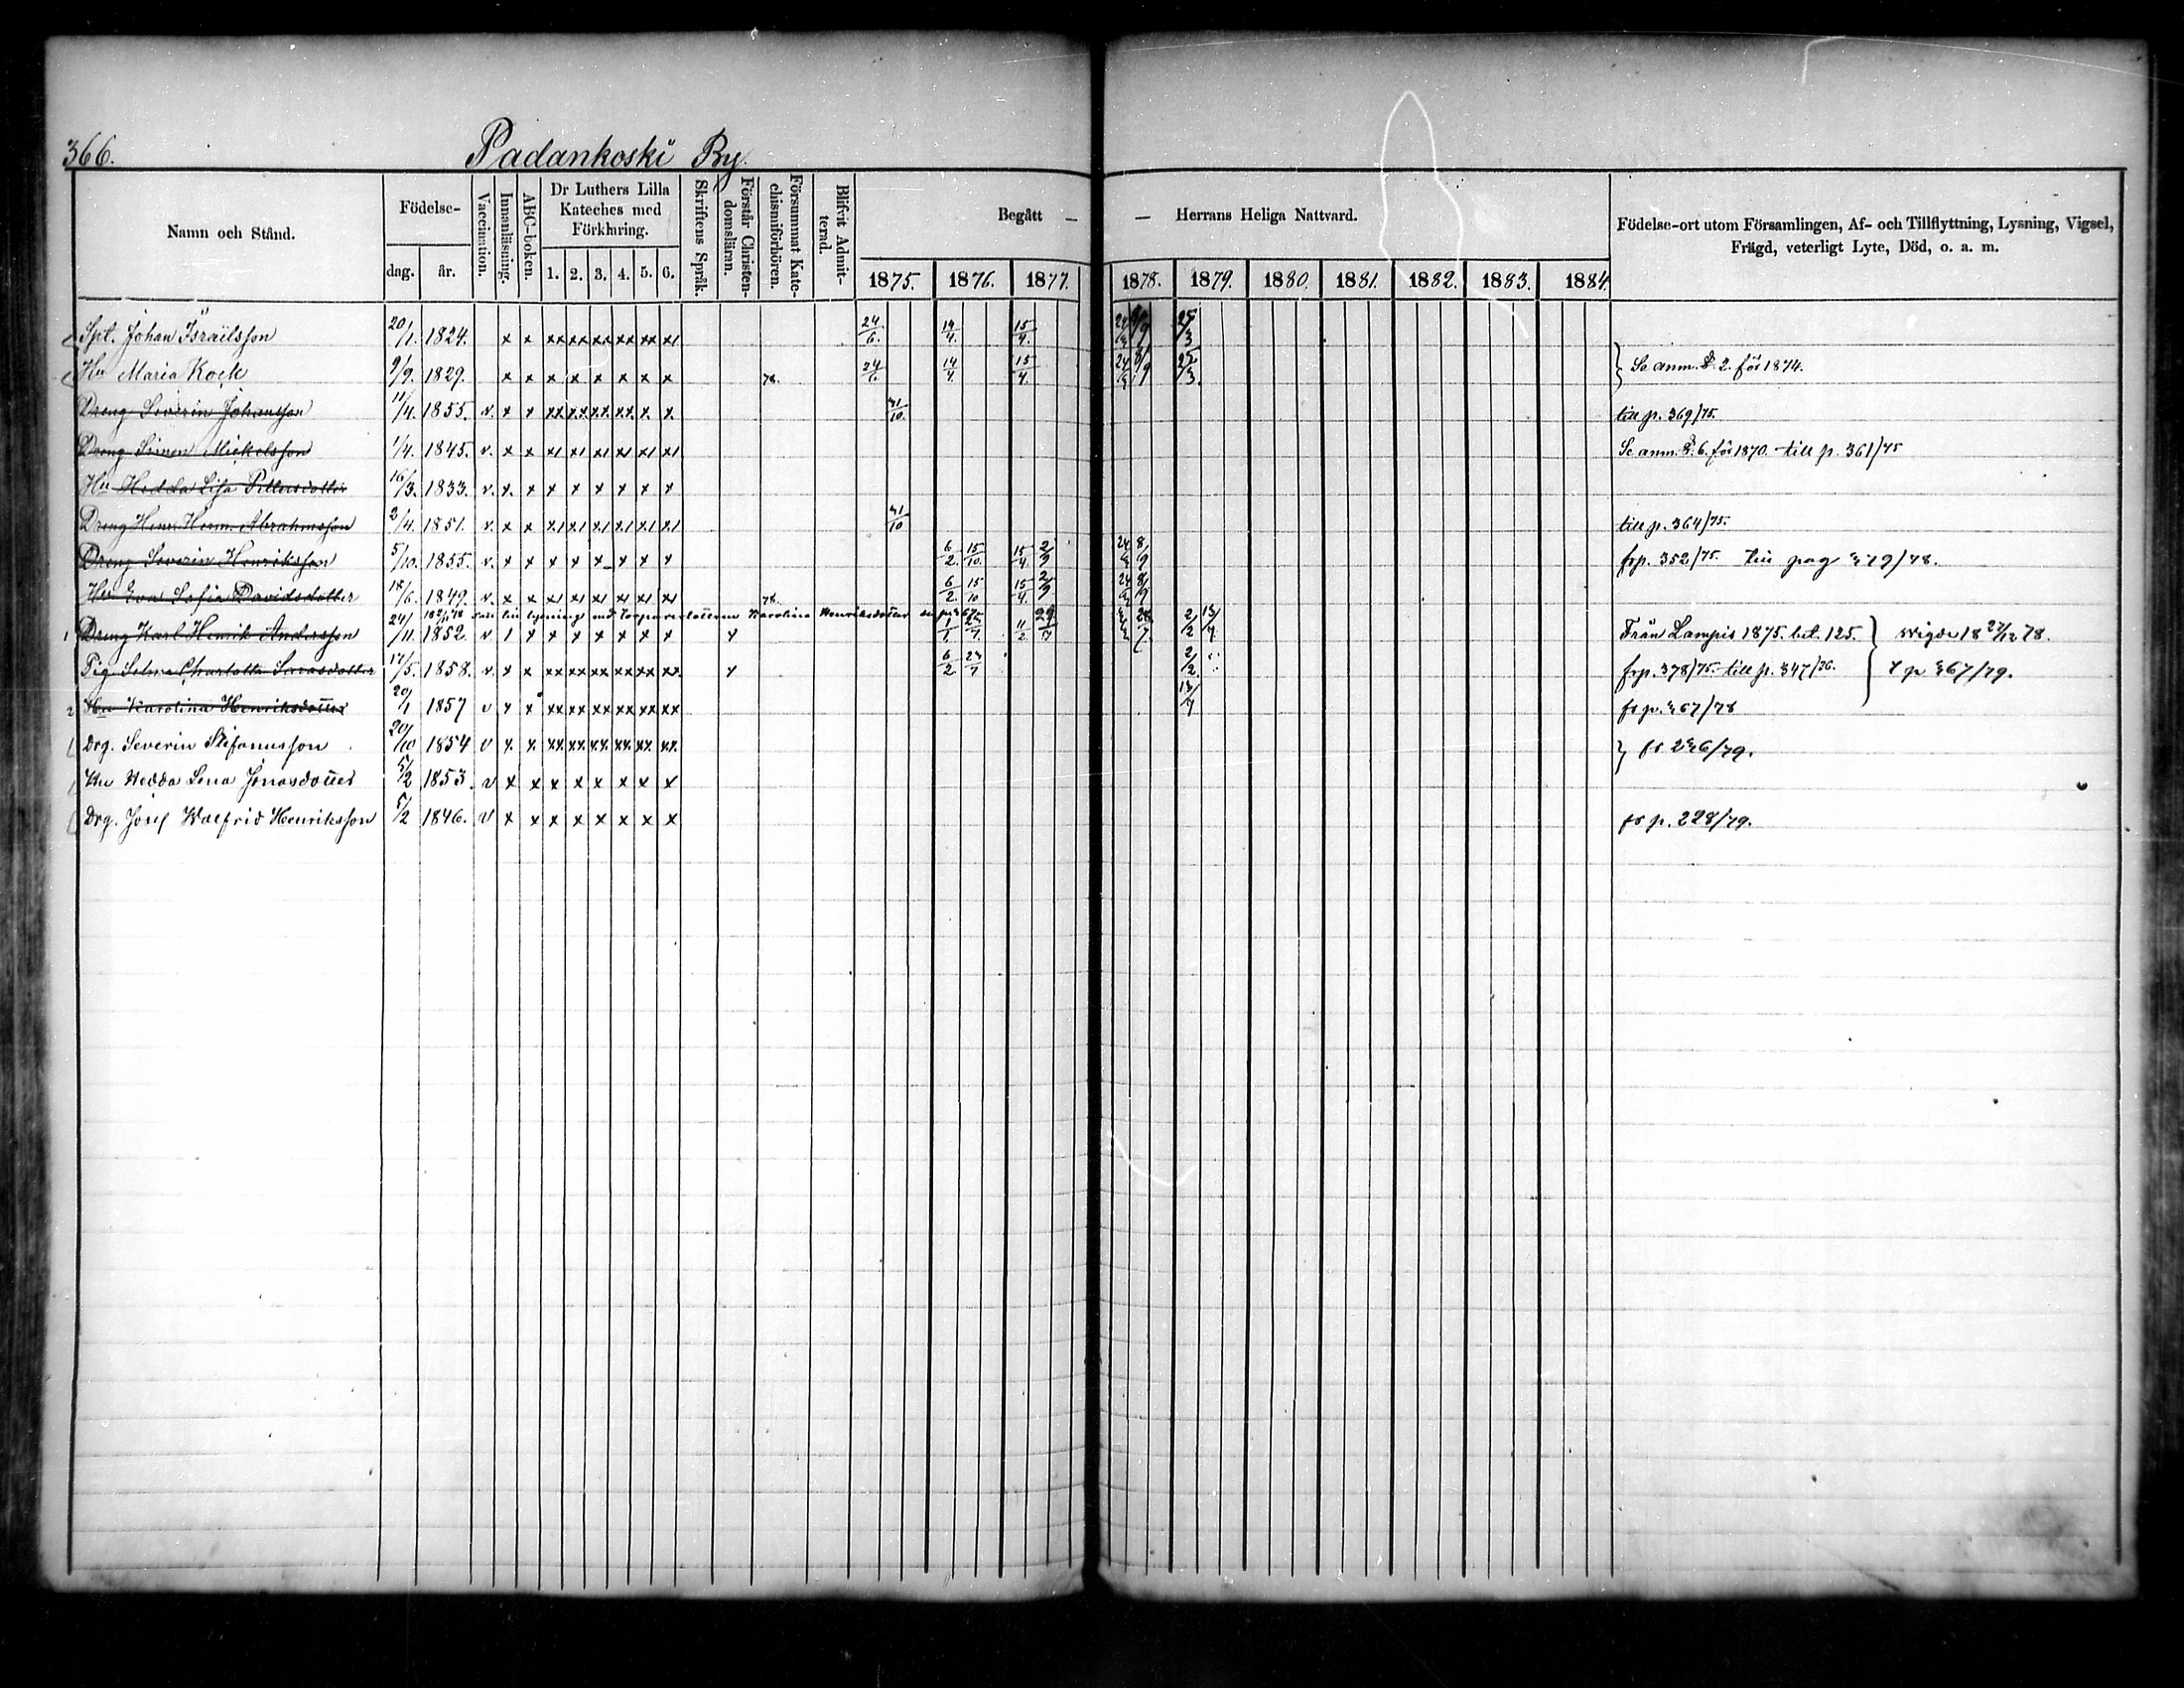 366. Padankoski By.
Namn och Stånd. Födelse- dag. år. Vaccination. Innanläsning. ABC-boken. Dr Luthers Lilla Kateches med Förklaring. 1. 2. 3. 4. 5. 6. Skriftens Språk. Förstår Christen-domsläran. Försummat Kate-chismiförhören. Blifvit Admit-terad. Begått — — Herrans Heliga Nattvard. 1875. 1876. 1877. 1878. 1879. 1880. 1881. 1882. 1883. 1884. Födelse-ort utom Församlingen, Af- och Tillflyttning, Lysning, Vigsel, Frägd, veterligt Lyte, Död, o. a. m.
Spt. Johan Israëlsson 20/1. 1824. x x xx xx xx xx xx x1 24/6. 14/4. 15/4. 25/3
Hu Maria Kock 9/9. 1829. x x x x x x x x 78. 24/6. 14/4. 15/4. 25/3. } Se anm. 2. för 1874.
Dreng Severin Johansson 11/4. 1855. v. x x xx xx xx xx x. x. 31/10. till p. 369/75.
Dreng Simon Mickelsson 1/4. 1845. v. x x x1 x1 x1 x1 x1 x1 Se anm. 6. för 1870. till p. 361/75
Hu Hedda Lisa Pettersdotter 16/3. 1833. v. x. x x x x x x x
Dreng Henr. Herm. Abrahamsson 2/4. 1851. v. x x x1 x1 x1 x1 x1 x1 31/10 till p. 364/75.
Dreng Severin Henriksson 5/10. 1855. v. x x x x x x x x 6/2. 15/10. 15/4. 2/9 8/9 frp. 352/75. till pag 319/78.
Hu Eva Sofia Davidsdotter 18/6. 1849. v. x x x1 x1 x1 x1 x1 x1 78. 6/2. 15/10 15/4. 2/9 8/9
till lysning med Torparedottern Karolina Henriksdotter
1 Dreng Karl Henrik Andersson 24/11. 1852. v 1 x x x x x x x x 11/2 29/7 2/2 13/7 Från Lampis 1875. bet. 125. } vigde 18 27/12 78.
Pig. Selma Charlotta 17/5. 1858. v. x x xx xx xx xx xx xx x 6/2 23/7 2/2. frp. 378/75. till p. 347/76. p 367/79.
2 Hu Karolina Henriksdotter 20/1 1857 v x x xx xx xx xx xx xx 13/7 fr p. 367/78
Drg. Severin Stefanusson 20/10 1854 v x. x. xx xx xx xx xx xx. } fr 236/79.
Hu Hedda Lena Jonasdotter 5/2 1853. v x x x x x x x x
Drg. Josef Walfrid Henriksson 5/2 1846. v x x x x x x x x fr p. 228/79.